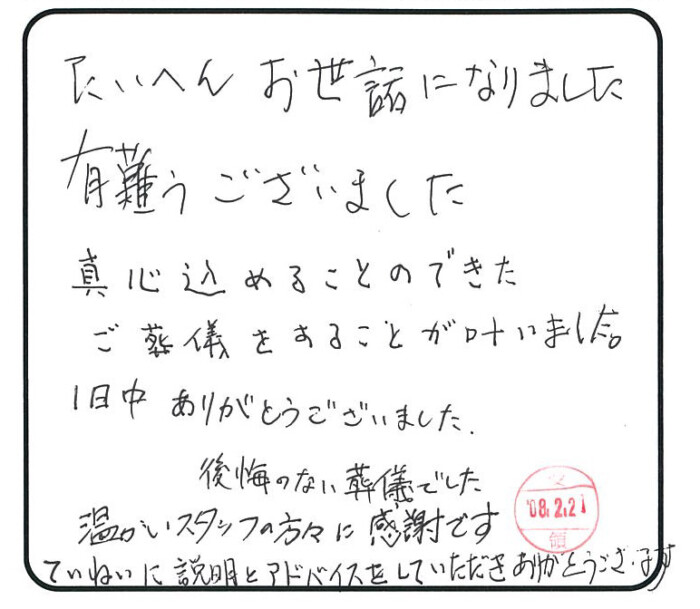 たいへん お世話になりました
有難うございました
真心込めることのできた
ご葬儀をすることが叶いました。
1日中 ありがとうございました.
後悔のない葬儀でした
'08.2.21
領
温かいスタッフの方々に感謝です
ていねいに説明とアドバイスをしていただきありがとうございます